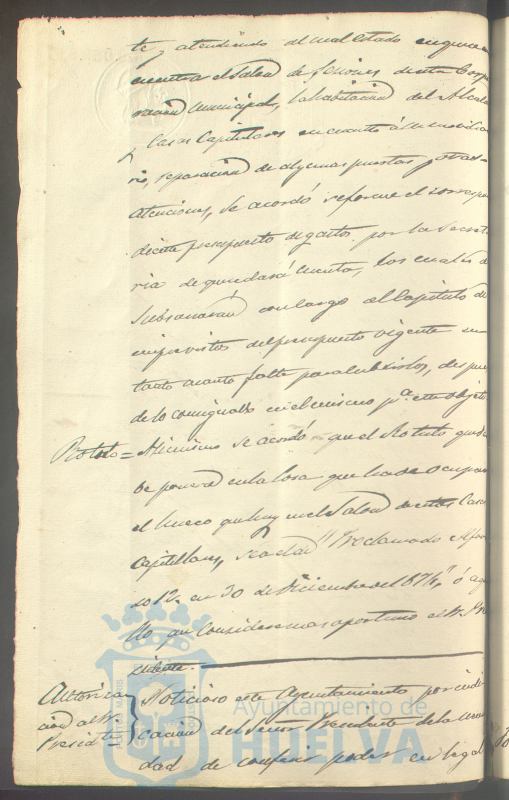 te, atendiendo al mal estado en que se en
cuentra el Salon de Sesiones de esta Corpo
racion Municipal, la habitacion del Alcalde
y Casas Capitulares en cuanto á su mobilia
rio, reparacion de algunas puertas y otras
atenciones, se acordó se forme el correspon
diente presupuesto de gastos por la Secreta
ria de que se dará cuenta, los cuales se
subsanarán con cargo al Capitulo de
imprevistos del presupuesto vigente en
tanto cuanto falte para cubrirlos, despues
de lo consignado en el mismo pª. este objeto
Rotulo = Asimismo se acordó que el Rotulo que ha
de ponerse en la losa que ha de ocupar
el hueco que hay en el Salon de estas Casas
Capitulares, sea el de "Proclamado Alfon
so 12. en 30 de Diciembre del 1874", ó aque
llo que considere mas oportuno el Sr. Pre
sidente.
Autoriza
cion al Sr.
Presidte
Noticioso este Ayuntamiento por indi
cacion del Señor Presidente de la nece
dad de conferir poder en legal
Ayuntamiento de
HUELVA